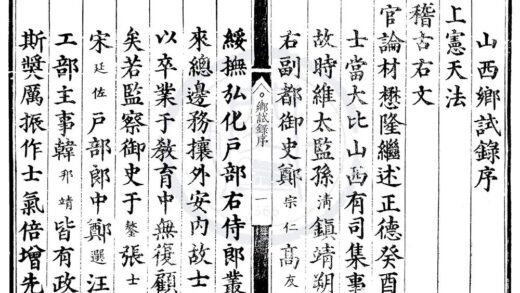 山西鄉試錄序
上憲天法
稽古右文
官論材懋隆繼述正德癸酉
士當大比山西有司集事
故時維太監孫清鎮靖朔
右副都御史鄭宗仁高友
鄉試錄序
一
綏撫弘化戶部右侍郎叢
來總邊務攘外安內故士
以卒業于教育中無復顧
矣若監察御史于鏊張士
宋廷佐戶部郎中鄭選汪
工部主事韓邦靖皆有政
斯獎厲振作士氣倍增先